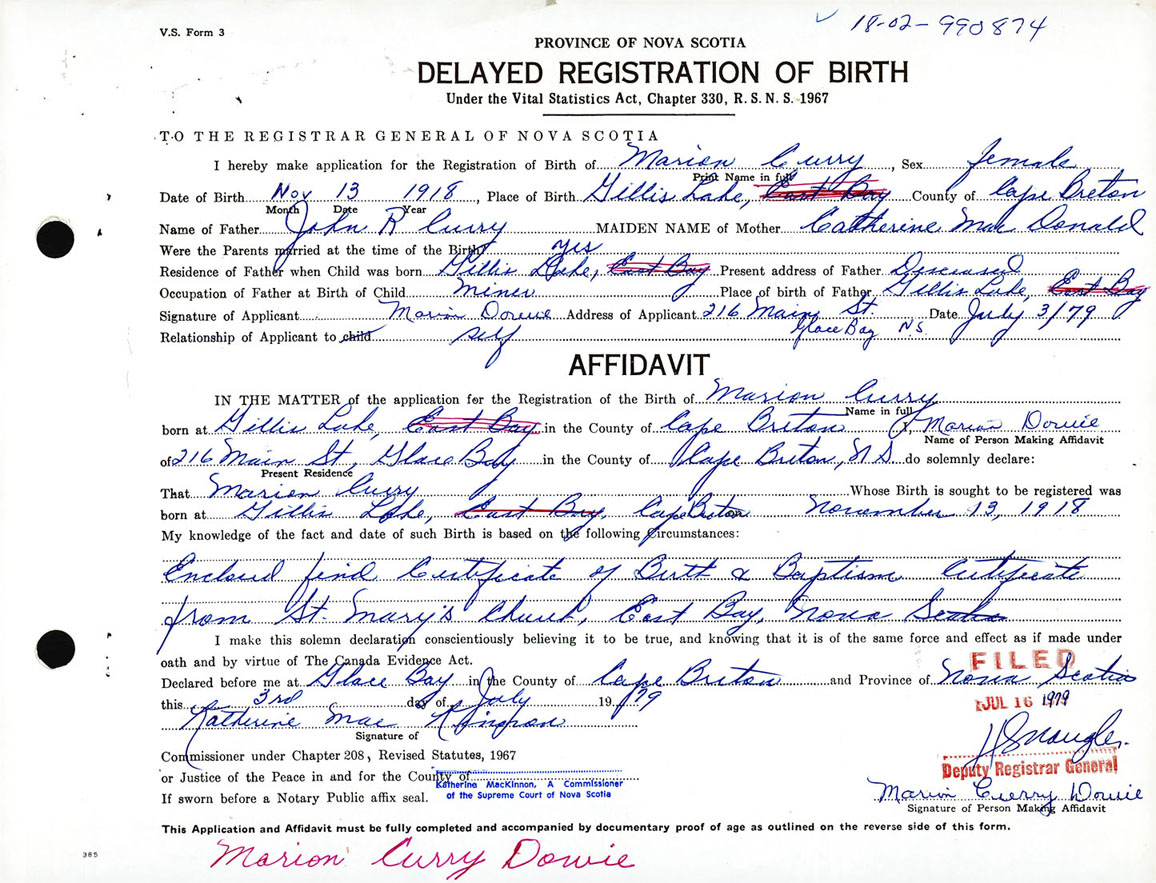 V.S. Form 3
18-02-990874
PROVINCE OF NOVA SCOTIA
DELAYED REGISTRATION OF BIRTH
Under the Vital Statistics Act, Chapter 330, R.S.N.S. 1967
TO THE REGISTRAR GENERAL OF NOVA SCOTIA
I hereby make application for the Registration of Birth of Marion Curry, Sex female
Print Name in full
Date of Birth Nov 13 1918, Place of Birth Gillis Lake, East Bay County of Cape Breton
Month Date Year
Name of Father John R Curry MAIDEN NAME of Mother Catherine Mac Donald
Were the Parents married at the time of the Birth yes
Residence of Father when Child was born Gillis Lake, East Bay Present address of Father Desceased
Occupation of Father at Birth of Child miner Place of birth of Father Gillis Lake, East Bay
Signature of Applicant Marion Dowie Address of Applicant 216 Main St. Date July 3/79
Glace Bay N.S.
Relationship of Applicant to child self
AFFIDAVIT
IN THE MATTER of the application for the Registration of the Birth of Marion Curry
Name in full
born at Gillis Lake, East Bay in the County of Cape Breton I, Marion Dowie
Name of Person Making Affidavit
of 216 Main St, Glace Bay in the County of Cape Breton, N.S. do solemnly declare:
Present Residence
That Marion Curry Whose Birth is sought to be registered was
born at Gillis Lake, East Bay, Cape Breton November 13, 1918
My knowledge of the fact and date of such Birth is based on the following circumstances:
Enclosed find Certificate of Birth & Baptism Certificate
from St. Mary's Church, East Bay, Nova Scotia
I make this solemn declaration conscientiously believing it to be true, and knowing that it is of the same force and effect as if made under
oath and by virtue of The Canada Evidence Act.
FILED
Declared before me at Glace Bay in the County of Cape Breton and Province of Nova Scotia
this 3rd day of July 1979
JUL 16 1979
Katherine Mac Kinnon
Signature of
Commissioner under Chapter 208, Revised Statutes, 1967
or Justice of the Peace in and for the County of
Deputy Registrar General
Katherine MacKinnon, A Commissioner
of the Supreme Court of Nova Scotia
If sworn before a Notary Public affix seal.
Marion Curry Dowie
Signature of Person Making Affidavit
This Application and Affidavit must be fully completed and accompanied by documentary proof of age as outlined on the reverse side of this form.
385
Marion Curry Dowie